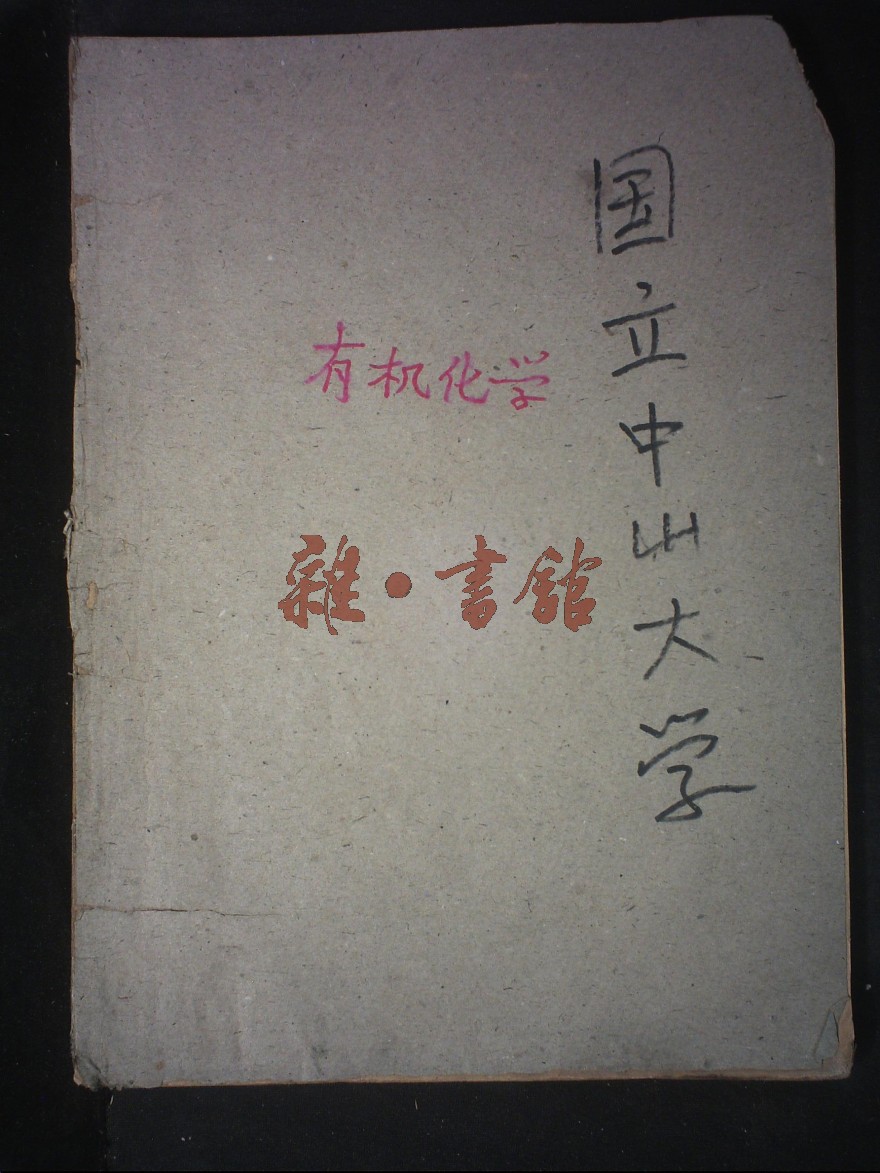 国立中山大学
有机化学
雜·書館